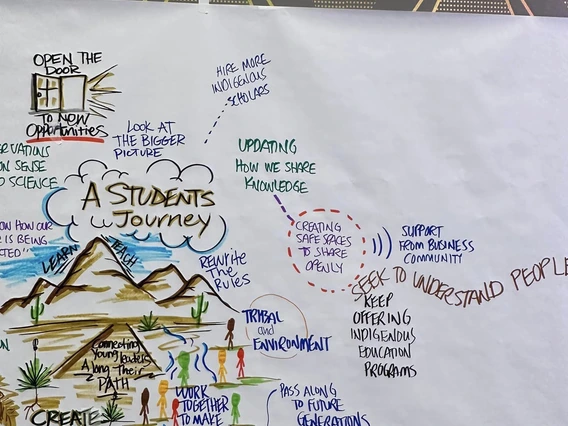 OPEN THE
DOOR
TO NEW
OPPORTUNITIES
HIRE MORE
INDIGENOUS
SCHOLARS
LOOK AT
THE BIGGER
PICTURE
ON SENSE
SCIENCE
A STUDENTS
JOURNEY
UPDATING
HOW WE SHARE
KNOWLEDGE
HOW OUR
IS BEING
CREATING
SAFE SPACES
TO SHARE
OPENLY
SUPPORT
FROM BUSINESS
COMMUNITY
LEARN
TEACH
REWRITE
THE
RULES
SEEK TO UNDERSTAND PEOPLE
KEEP
OFFERING
INDIGENOUS
EDUCATION
PROGRAMS
TRIBAL
and
ENVIRONMENT
Connecting
Young leaders
Along Their
PATH
WORK
TOGETHER
TO MAKE
PASS ALONG
TO FUTURE
GENERATIONS
CREATE